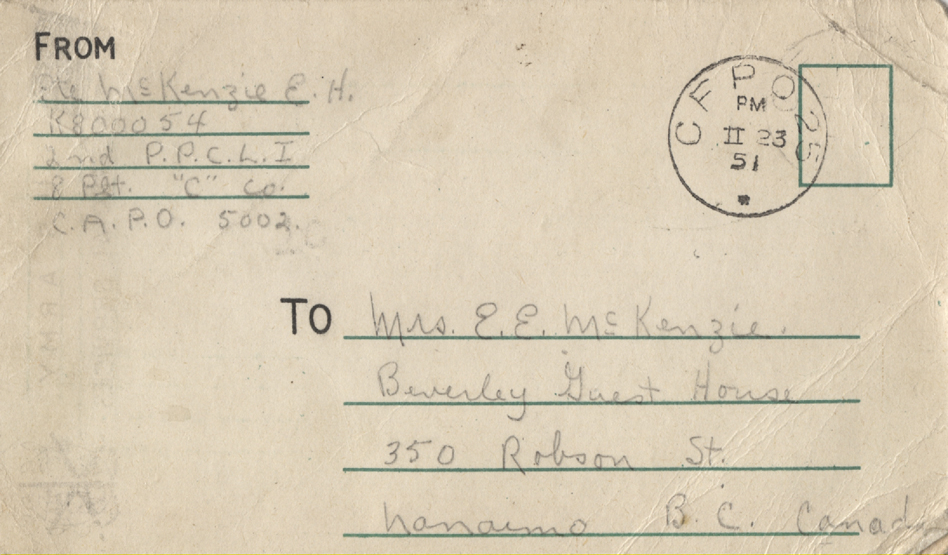 FROM
Pte McKenzie E. H.
K800054
2nd P.P.C.L.I.
8 Plt. "C" Co.
C.A.P.O. 5002.
CFPO 25
PM
II 23
51
TO Mrs. E. E. McKenzie.
Beverley Guest House
350 Robson St.
Nanaimo B.C. Canada